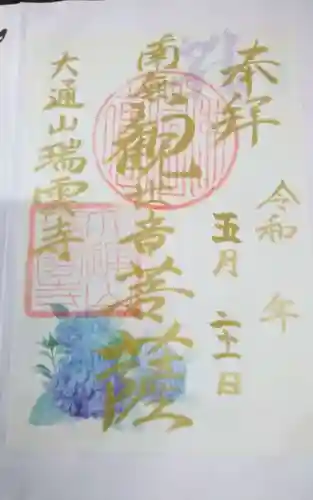 奉拝
令和 年
五月 二十一日
南無観世音菩薩
大通山瑞雲寺